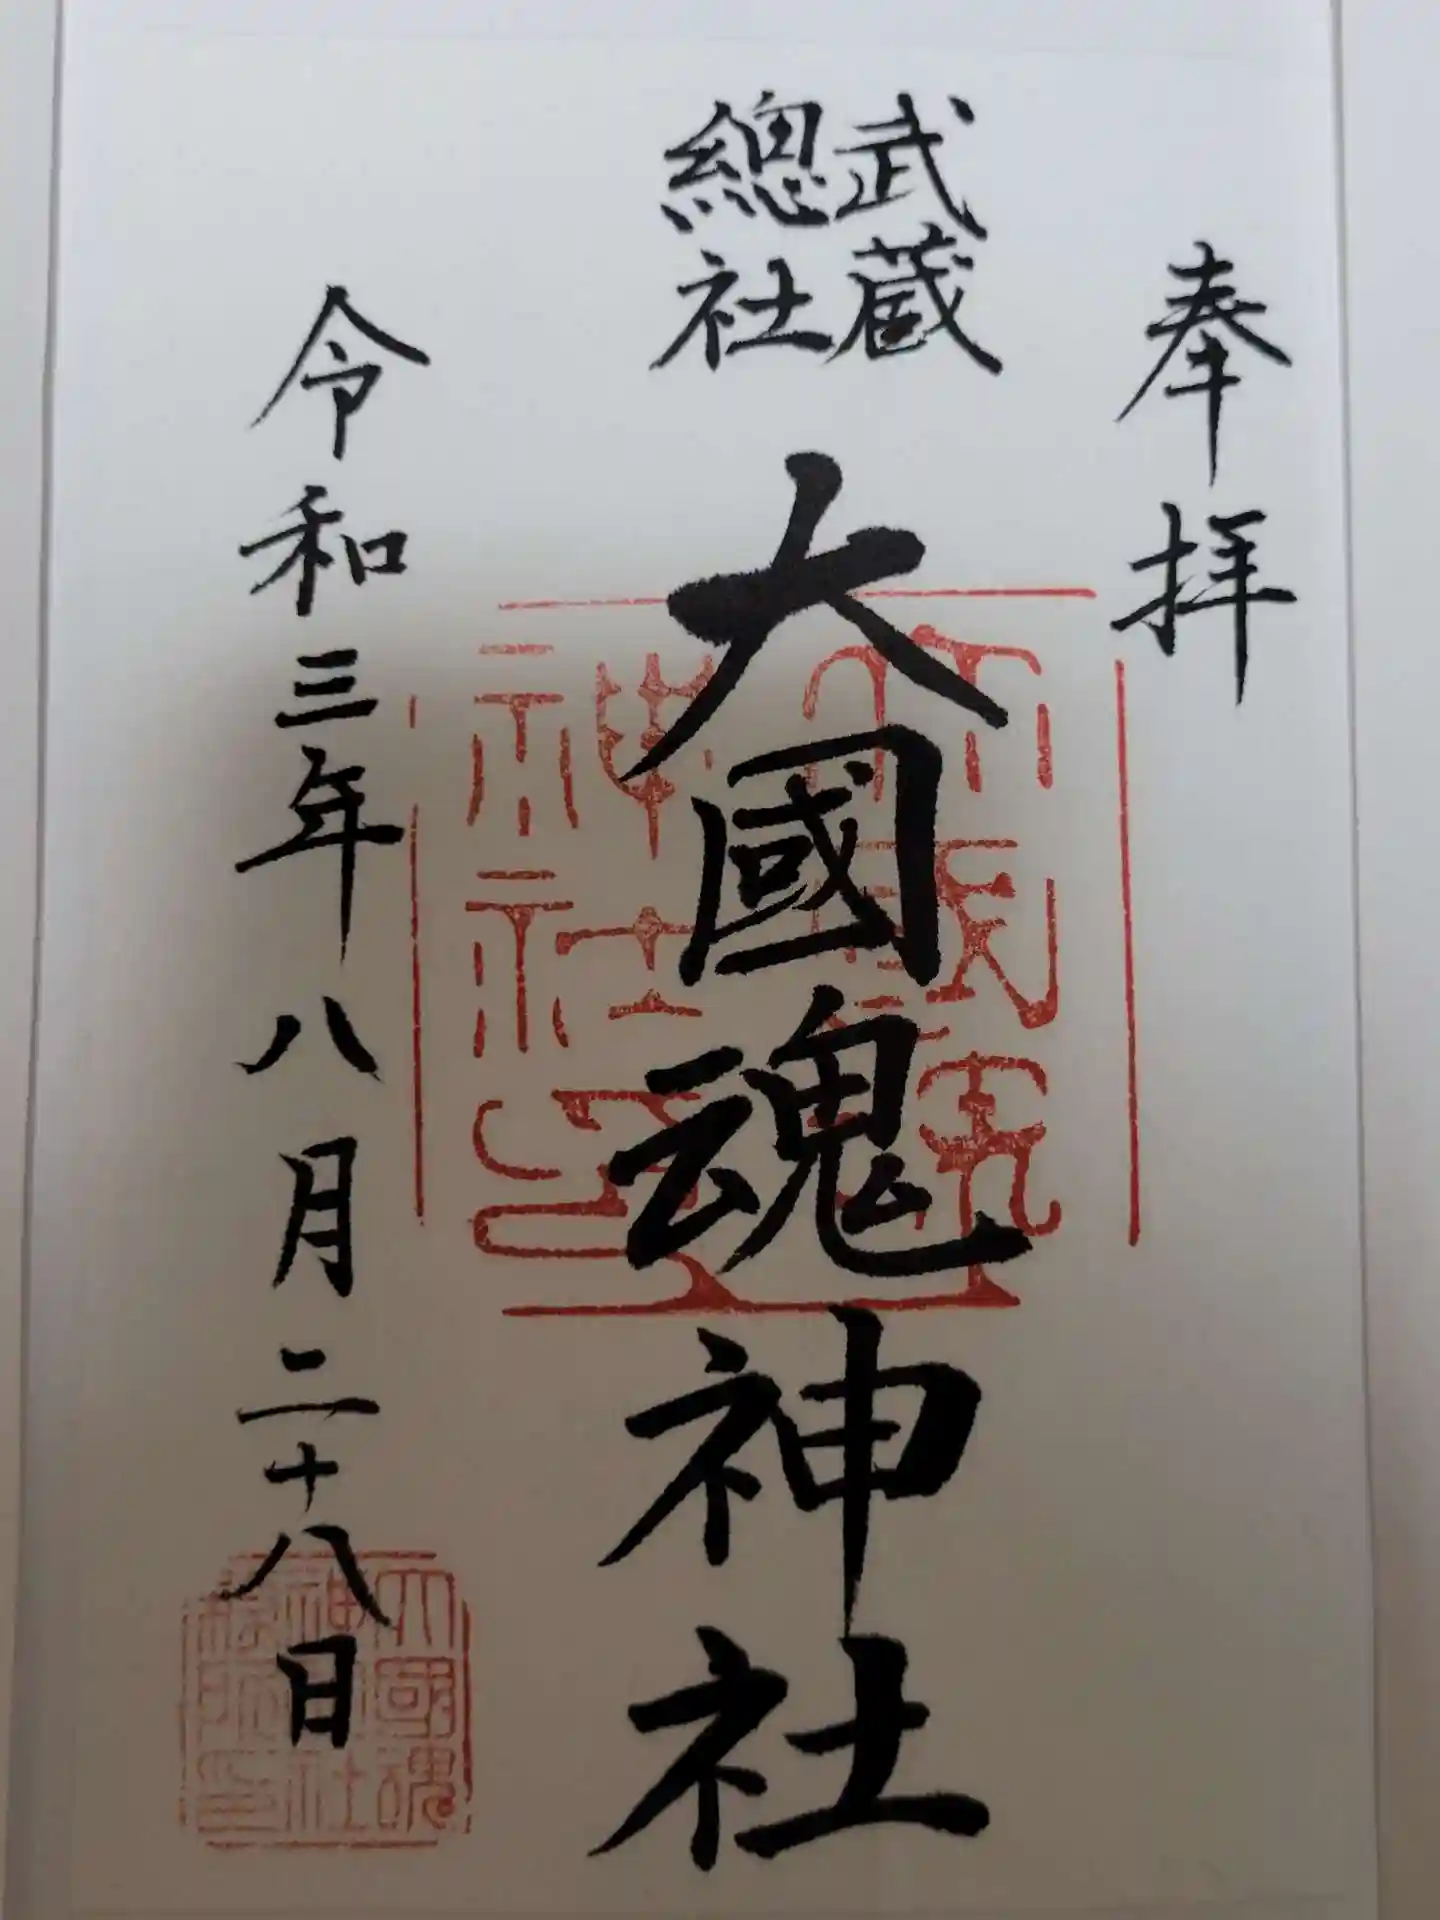 奉拝
武蔵
總社
大國魂神社
令和三年八月二十八日
大國魂
神社